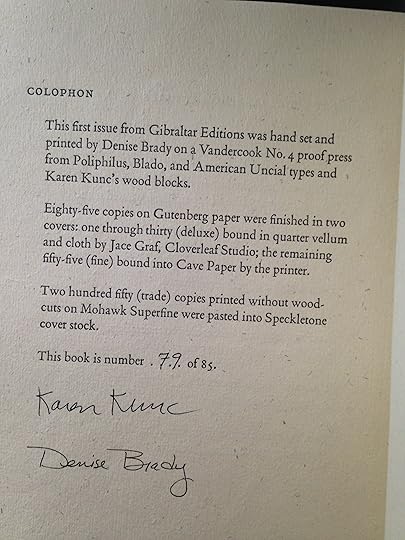 COLOPHON
This first issue from Gibraltar Editions was hand set and
printed by Denise Brady on a Vandercook No. 4 proof press
from Poliphilus, Blado, and American Uncial types and
Karen Kunc's wood blocks.
Eighty-five copies on Gutenberg paper were finished in two
covers: one through thirty (deluxe) bound in quarter vellum
and cloth by Jace Graf, Cloverleaf Studio; the remaining
fifty-five (fine) bound into Cave Paper by the printer.
Two hundred fifty (trade) copies printed without wood-
cuts on Mohawk Superfine were pasted into Speckletone
cover stock.
This book is number . 79. of 85.
Karen Kunc
Denise Brady